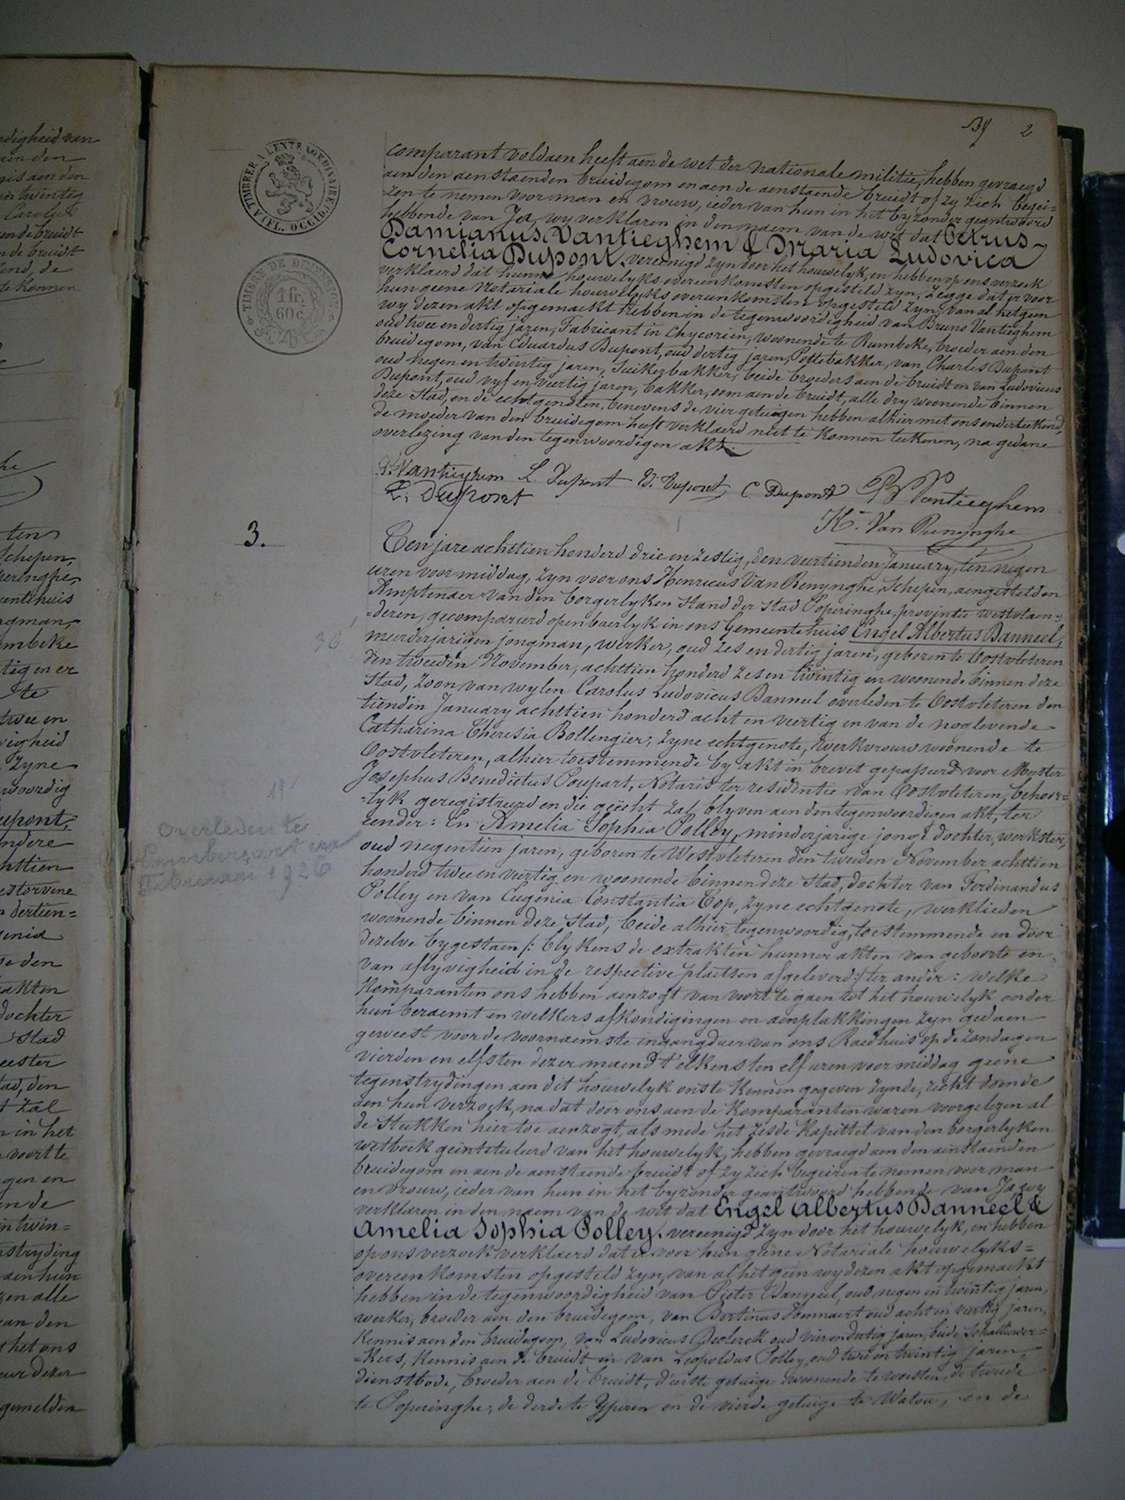 By 2
TIMBRE A L'EXTRAORDINAIRE
ATEL. OCCID.
TIMBRE DE DIMENSION
1 fr.
60 c.
comparant voldaen heeft aen de wet der nationale militie, hebben gevraegd
aen den aenstaenden bruidegom en aen de aenstaende bruidt of zy zich begee-
ren te nemen voor man en vrouw, ieder van hun in het byzonder geantwoord
hebbende van Ja, wy verklaren in den naem van de wet dat Petrus
Damianus Vantieghem & Maria Ludovica
Cornelia Dupont, vereenigd zyn door het houwelyk, en hebben op ons verzoek
verklaerd dat hunne houwelyks overeenkomsten opgesteld zyn, zegge dat er voor
hun geene Notariale houwelyks overeenkomsten opgesteld zyn, van al hetgeen
wy dezen akt opgemaekt hebben in de tegenwoordigheid van Bruno Vantieghem
oud twee en dertig jaren, Fabricant in Chycorien, woonende te Rumbeke, broeder aen den
bruidegom, van Eduardus Dupont, oud dertig jaren, Pottebakker, van Charles Dupont
oud negen en twintig jaren, Suikerbakker, beide broeders aen de bruidt en van Ludovicus
Dupont, oud vyf en veertig jaren, bakker, oom aen de bruidt, alle dry woonende binnen
deze Stad, en de echtgenoten, benevens de vier getuigen hebben alhier met ons onderteekend,
de moeder van den bruidegom heeft verklaerd niet te konnen teekenen, na gedane
overlezing van den tegenwoordigen akt
P. Vantieghem L. Dupont E. Dupont C Dupont B Vantieghem
L. Dupont
H. Van Renynghe
3.
Ten jare achttien honderd drie en zestig, den veertienden January, ten negen
uren voormiddag, zyn voor ons Henricus Van Renynghe, Schepen, aengestelden
Amptenaer van den borgerlyken Stand der Stad Poperinghe, provintie Westvlaen-
deren, gecompareerd openbaerlyk in ons Gemeentehuis Engel Albertus Banneel,
36
meerderjarigen jongman, werker, oud zes en dertig jaren, geboren te Oostvleteren
den tweeden November, achttien honderd zes en twintig en woonende binnen deze
Stad, Zoon van wylen Carolus Ludovicus Banneel overleden te Oostvleteren den
tienden January achttien honderd acht en veertig en van de noglevende
Catharina Theresia Bollengier, zyne echtgenote, werkvrouw woonende te
Oostvleteren, alhier toestemmende by akt in brevet gepasseerd voor Meyster
Josephus Benedictus Coupart, Notaris ter residentie van Oostvleteren, behoor-
lyk geregistreerd en die gehecht zal blyven aen den tegenwoordigen akt, ter
eender: En Amelia Sophia Polley, minderjarige jonge dochter, werkster,
19
oud negentien jaren, geboren te Westvleteren den tweeden November achttien
overleden te
februari 1926
honderd twee en veertig en woonende binnen deze Stad, dochter van Ferdinandus
Polley en van Eugenia Constantia Cop, zyne echtgenote, werklieden
woonende binnen deze Stad, beide alhier tegenwoordig, toestemmende en door
dezelve bygestaen /: blykens de extrakten hunner akten van geboorte en
van aflyvigheid in de respective plaetsen afgeleverd :/ ter ander: welke
Komparanten ons hebben aenzogt van voort te gaen tot het houwelyk onder
hun beraemt en welkers afkondigingen en aenplakkingen zyn gedaen
geweest voor de voornaemste ingangdeur van ons Raedhuis op de zondagen
vierden en elfsten dezer maend t' elkens ten elf uren voormiddag geene
tegenstrydingen aen dit houwelyk ons te kennen gegeven zynde, recht doende
aen hun verzoek, na dat door ons aen de Komparanten waren voorgelezen al
de Stukken hier toe aenzogt, als mede het zesde kapittel van den borgerlyken
wetboek geintituleerd van het houwelyk, hebben gevraegd aen den aenstaenden
bruidegom en aen de aenstaende bruidt of zy zich begeiren te nemen voor man
en vrouw, ieder van hun in het byzonder geantwoord hebbende van Ja, wy
verklaren in den naem van de wet dat Engel Albertus Banneel &
Amelia Sophia Polley, vereenigd zyn door het houwelyk, en hebben
op ons verzoek verklaerd dat er voor hun geene Notariale houwelyks=
overeenkomsten opgesteld zyn, van al het gein wy dezen akt opgemaekt
hebben in de tegenwoordigheid van Pieter Banneel, oud negen en twintig jaren,
werker, broeder aen den bruidegom, van Bertinus oud acht en veertig jaren,
Kennis aen den bruidegom, van Ludovicus oud vier en dertig jaren, beide
Kennis aen de bruidt en van Leopoldus Polley, oud twee en twintig jaren,
dienstbode, broeder aen de bruidt, d'eerste getuige woonende te woesten, de tweede
te Poperinghe, de derde te Ypren en de vierde getuige te Watou, en de